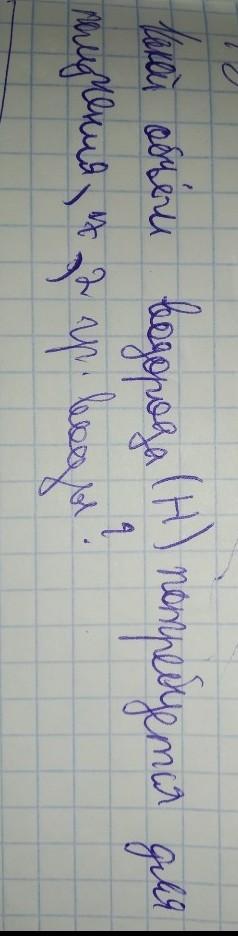 Какой объём водорода (H) потребуется для
получения 7,2 гр. воды?